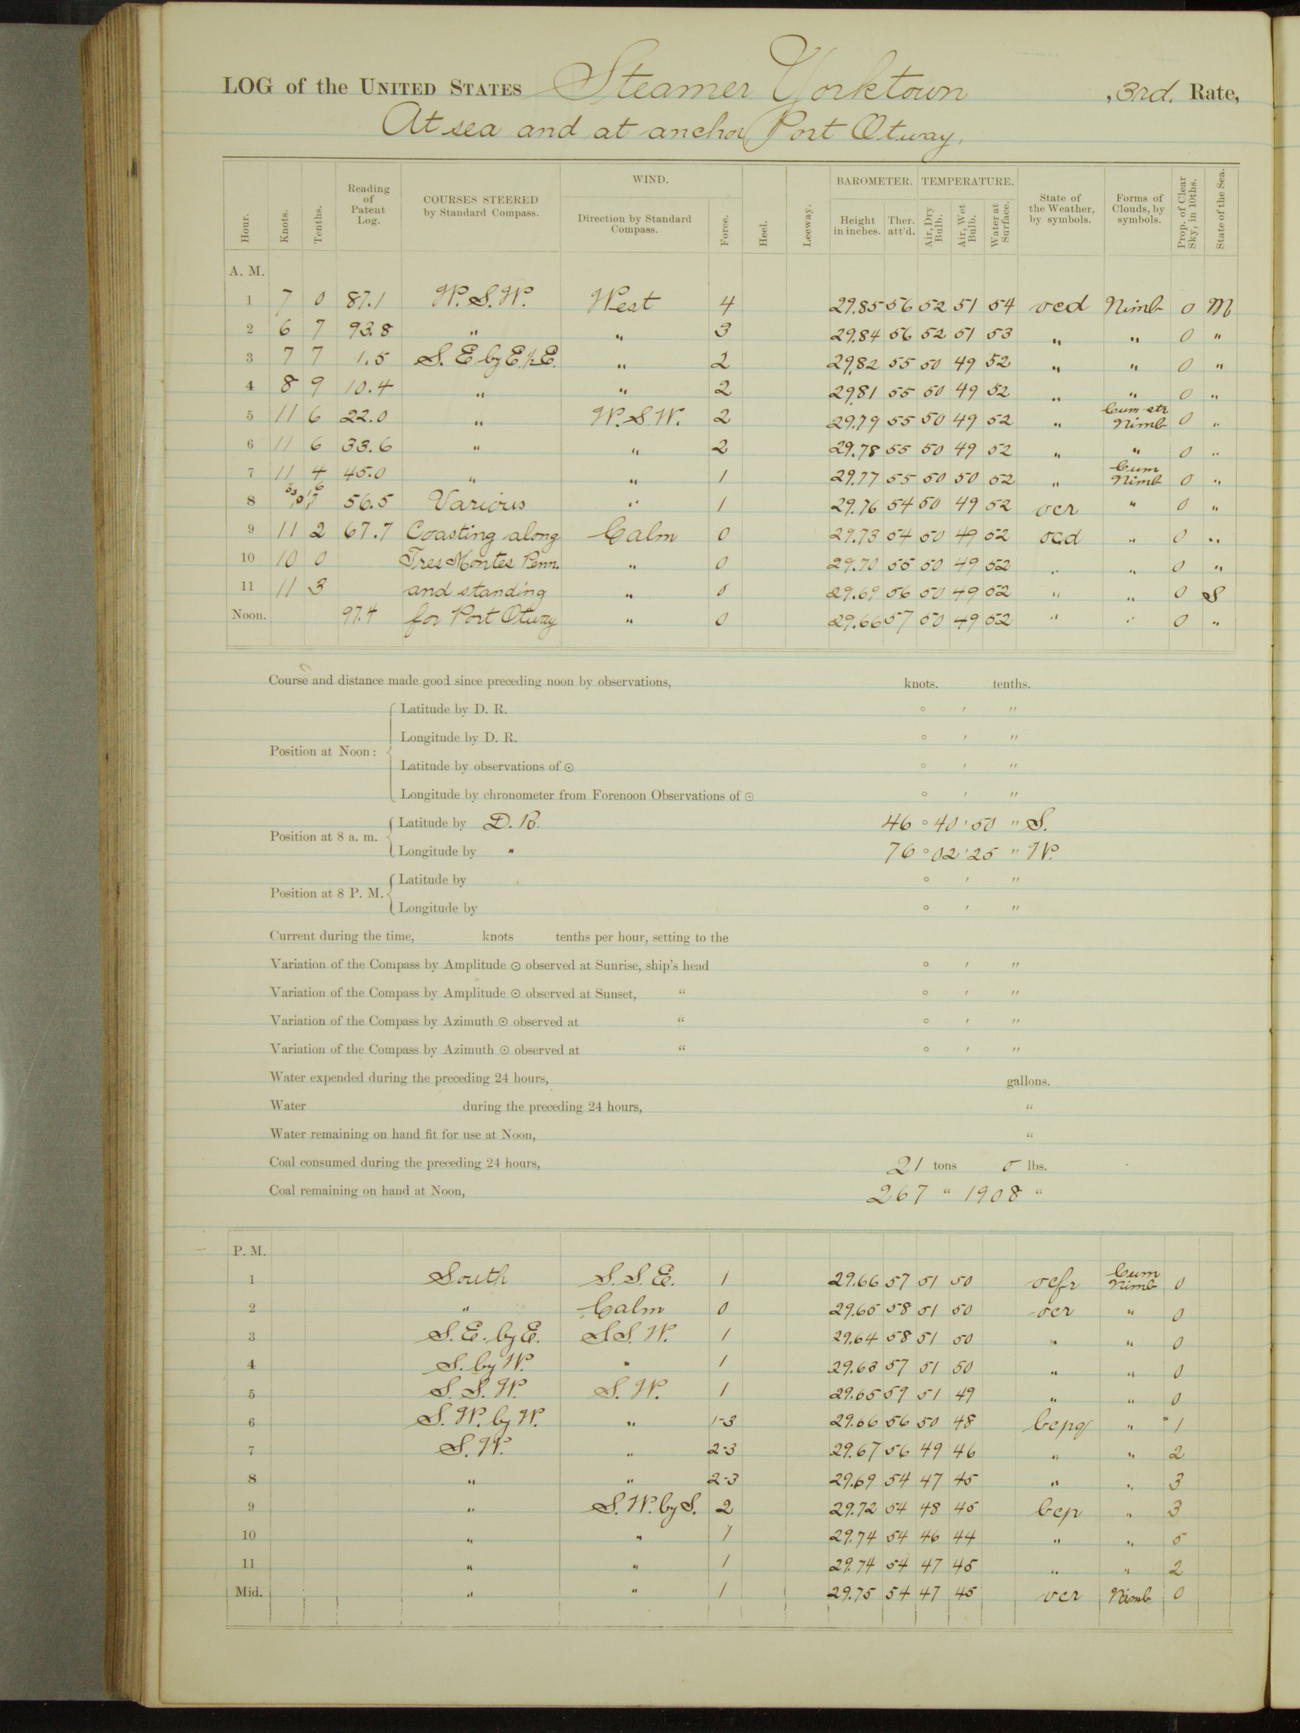 LOG of the UNITED STATES Steamer Yorktown , 3rd. Rate,
At sea and at anchor Port Otway.
Hour. Knots. Tenths. Reading of Patent Log. COURSES STEERED by Standard Compass. WIND. Direction by Standard Compass. Force. Heel. Leeway. BAROMETER. Height in inches. Ther. att'd. TEMPERATURE. Air, Dry Bulb. Air, Wet Bulb. Water at Surface. State of the Weather, by symbols. Forms of Clouds, by symbols. Prop. of Clear Sky, in 10ths. State of the Sea.
A. M.
1 7 0 87.1 W. S. W. West 4 29.85 56 52 51 54 ocd Nimb 0 M
2 6 7 93.8 " " 3 29.84 56 52 51 53 " " 0 "
3 7 7 1.5 S. E. by E. ½ E. " 2 29.82 55 50 49 52 " " 0 "
4 8 9 10.4 " " 2 29.81 55 50 49 52 " " 0 "
5 11 6 22.0 " W. S. W. 2 29.79 55 50 49 52 " Cum-str Nimb 0 "
6 11 6 33.6 " " 2 29.78 55 50 49 52 " " 0 "
7 11 4 45.0 " " 1 29.77 55 50 50 52 " Cum Nimb 0 "
8 56.5 Various " 1 29.76 54 50 49 52 ocr " 0 "
9 11 2 67.7 Coasting along Calm 0 29.73 54 50 49 52 ocd " 0 "
10 10 0 Tres Montes Penn. " 0 29.70 55 50 49 52 " " 0 "
11 11 3 and standing " 0 29.69 56 50 49 52 " " 0 S
Noon. 97.4 for Port Otway " 0 29.66 57 50 49 52 " " 0 "
Course and distance made good since preceding noon by observations, knots. tenths.
Position at Noon:
Latitude by D. R. ° ′ ″
Longitude by D. R. ° ′ ″
Latitude by observations of ☉ ° ′ ″
Longitude by chronometer from Forenoon Observations of ☉ ° ′ ″
Position at 8 a. m.
Latitude by D. R. 46 ° 40 ′ 50 ″ S.
Longitude by " 76 ° 02 ′ 25 ″ W.
Position at 8 P. M.
Latitude by ° ′ ″
Longitude by ° ′ ″
Current during the time, knots tenths per hour, setting to the
Variation of the Compass by Amplitude ☉ observed at Sunrise, ship's head ° ′ ″
Variation of the Compass by Amplitude ☉ observed at Sunset, " ° ′ ″
Variation of the Compass by Azimuth ☉ observed at " ° ′ ″
Variation of the Compass by Azimuth ☉ observed at " ° ′ ″
Water expended during the preceding 24 hours, gallons.
Water during the preceding 24 hours, "
Water remaining on hand fit for use at Noon, "
Coal consumed during the preceding 24 hours, 21 tons 0 lbs.
Coal remaining on hand at Noon, 267 " 1908 "
P. M.
1 South S. S. E. 1 29.66 57 51 50 ocfr Cum Nimb 0
2 " Calm 0 29.65 58 51 50 ocr " 0
3 S. E. by E. S. S. W. 1 29.64 58 51 50 " " 0
4 S. by W. " 1 29.63 57 51 50 " " 0
5 S. S. W. S. W. 1 29.65 59 51 49 " " 0
6 S. W. by W. " 1-3 29.66 56 50 48 bcpq " 1
7 S. W. " 2-3 29.67 56 49 46 " " 2
8 " " 2-3 29.69 54 47 45 " " 3
9 " S. W. by S. 2 29.72 54 48 45 bcp " 3
10 " " 1 29.74 54 46 44 " " 5
11 " " 1 29.74 54 47 45 " " 2
Mid. " " 1 29.75 54 47 45 ocr Nimb 0